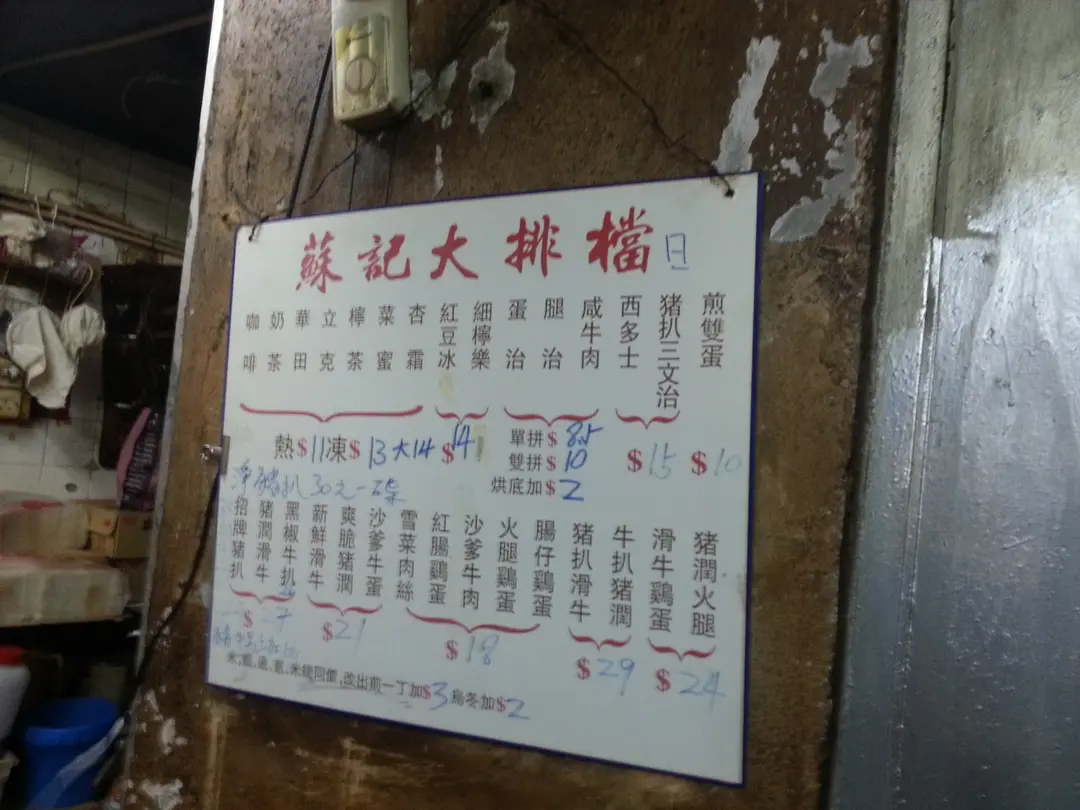 蘇記大排檔 日
咖啡
奶茶
華田
立克
檸茶
菜蜜
杏霜
紅豆冰
細檸樂
蛋治
腿治
咸牛肉
西多士
猪扒三文治
煎雙蛋
熱$11凍$13大14
$14
單拼$8.5
雙拼$10
烘底加$2
$15
$10
淨豬扒30元一碟
招牌豬扒
豬潤滑牛
黑椒牛扒
新鮮滑牛
爽脆猪潤
沙爹牛蛋
雪菜肉絲
紅腸鷄蛋
沙爹牛肉
火腿鷄蛋
腸仔鷄蛋
猪扒滑牛
牛扒猪潤
滑牛鷄蛋
猪潤火腿
$27
$21
$18
$29
$24
同價,改出前一丁加$3烏冬加$2